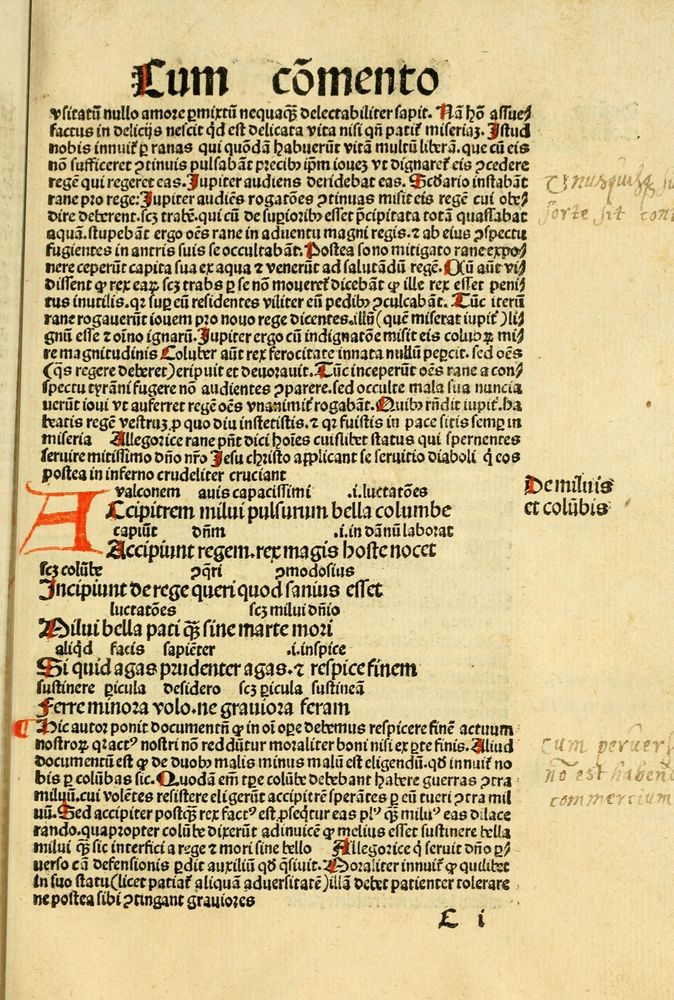 Cum cōmento
vsitatū nullo amore ꝑmixtū nequaqꝫ delectabiliter sapit. Nā hō assue/
factus in delicijs nescit qd̄ est delicata vita nisi qn̄ patit᷑ miseriaꝫ. Istud
nobis innuit᷑ ꝑ ranas qui quōdā habuerūt vitā multū liberā. que cū eis
nō sufficeret ꝯtinuis pulsabāt precibꝰ ip̄m iouez vt dignaret᷑ eis ꝯcedere
regē qui regeret eas. Jupiter audiens deridebat eas. Scd̄ario instabāt
rane pro rege: Jupiter audiēs rogatōes ꝯtinuas misit eis regē cui obe/
dire deberent. scꝫ trabē. qui cū de supioribꝰ esset p̄cipitata totā quassabat
aquā. stupebāt ergo oēs rane in aduentu magni regis. ⁊ ab eius ꝯspectu
fugientes in antris suis se occultabāt. Postea sono mitigato rane expo/
nere ceperūt capita sua ex aqua ⁊ venerūt ad salutādū regē. Cū aūt vi/
dissent ꝙ rex eaꝝ scꝫ trabs ꝑ se nō moueret᷑ dicebāt ꝙ ille rex esset peni/
tus inutilis. qr sup eū residentes viliter eū pedibꝰ ꝯculcabāt. Tūc iterū
rane rogauerūt iouem pro nouo rege dicentes. illū (quē miserat iupit᷑) li/
gnū esse ⁊ oīno ignarū. Jupiter ergo cū indignatōe misit eis colubꝝ mi/
re magnitudinis Coluber aūt rex ferocitate innata nullū peꝑcit. sed oēs
(qs regere deberet) eripuit et deuorauit. Tūc inceperūt oēs rane a con/
spectu tyrāni fugere nō audientes ꝯparere. sed occulte mala sua nuncia
uerūt ioui vt auferret regē oēs vnanimit᷑ rogabāt. Quibꝰ rn̄dit iupit᷑. ha
beatis regē vestrū. ꝑ quo diu institistis. ⁊ qr fuistis in pace sitis semꝑ in
miseria Allegorice rane pn̄t dici hoīes cuiuslibet status qui spernentes
seruire mitissimo dn̄o nr̄o Jesu christo applicant se seruitio diaboli q̄ eos
postea in inferno crudeliter cruciant
valconem auis capacissimi .i. luctatōes
Accipitrem milui pulsurum bella columbe
capiūt dn̄m .i. in dānū laborat
Accipiunt regem. rex magis hoste nocet
scꝫ colūbe ꝯq̄ri ꝯmodosius
Incipiunt de rege queri quod sanius esset
luctatōes scꝫ milui dn̄io
Milui bella pati qꝫ sine marte mori
aliqd̄ facis sapiēter .i. inspice
Si quid agas prudenter agas. ⁊ respice finem
sustinere ꝑicula desidero scꝫ ꝑicula sustineā
Ferre minora volo. ne grauiora feram
De miluis
et colūbis
Hic autor ponit documentū ꝙ in oī oꝑe debemus respicere finē actuum
nostroꝝ. qr actꝰ nostri nō reddūtur moraliter boni nisi ex ꝑte finis. Aliud
documentū est ꝙ de duobꝰ malis minus malū est eligendū. qd̄ innuit᷑ no
bis ꝑ colūbas sic. Quodā em̄ tꝑe colūbe debebant habere guerras ꝯtra
miluū. cui volētes resistere eligerūt accipitrē sperātes ꝑ eū tueri ꝯtra mil
uū. Sed accipiter postqꝫ rex factꝰ est. ꝑseq̄tur eas plꝰ qꝫ miluꝰ eas dilace
rando. quapropter colūbe dixerūt adinuicē ꝙ melius esset sustinere bella
milui qꝫ sic interfici a rege ⁊ mori sine bello Allegorice q̄ seruit dn̄o ꝑ/
uerso cā defensionis ꝑdit auxiliū qd̄ q̄siuit. Moraliter innuit᷑ ꝙ quilibet
in suo statu (licet patiat᷑ aliquā aduersitatē) illā debet patienter tolerare
ne postea sibi ꝯtingant grauiores
Vnusquisq
forte sit
cum peruers
nō est haben
commercium
E i